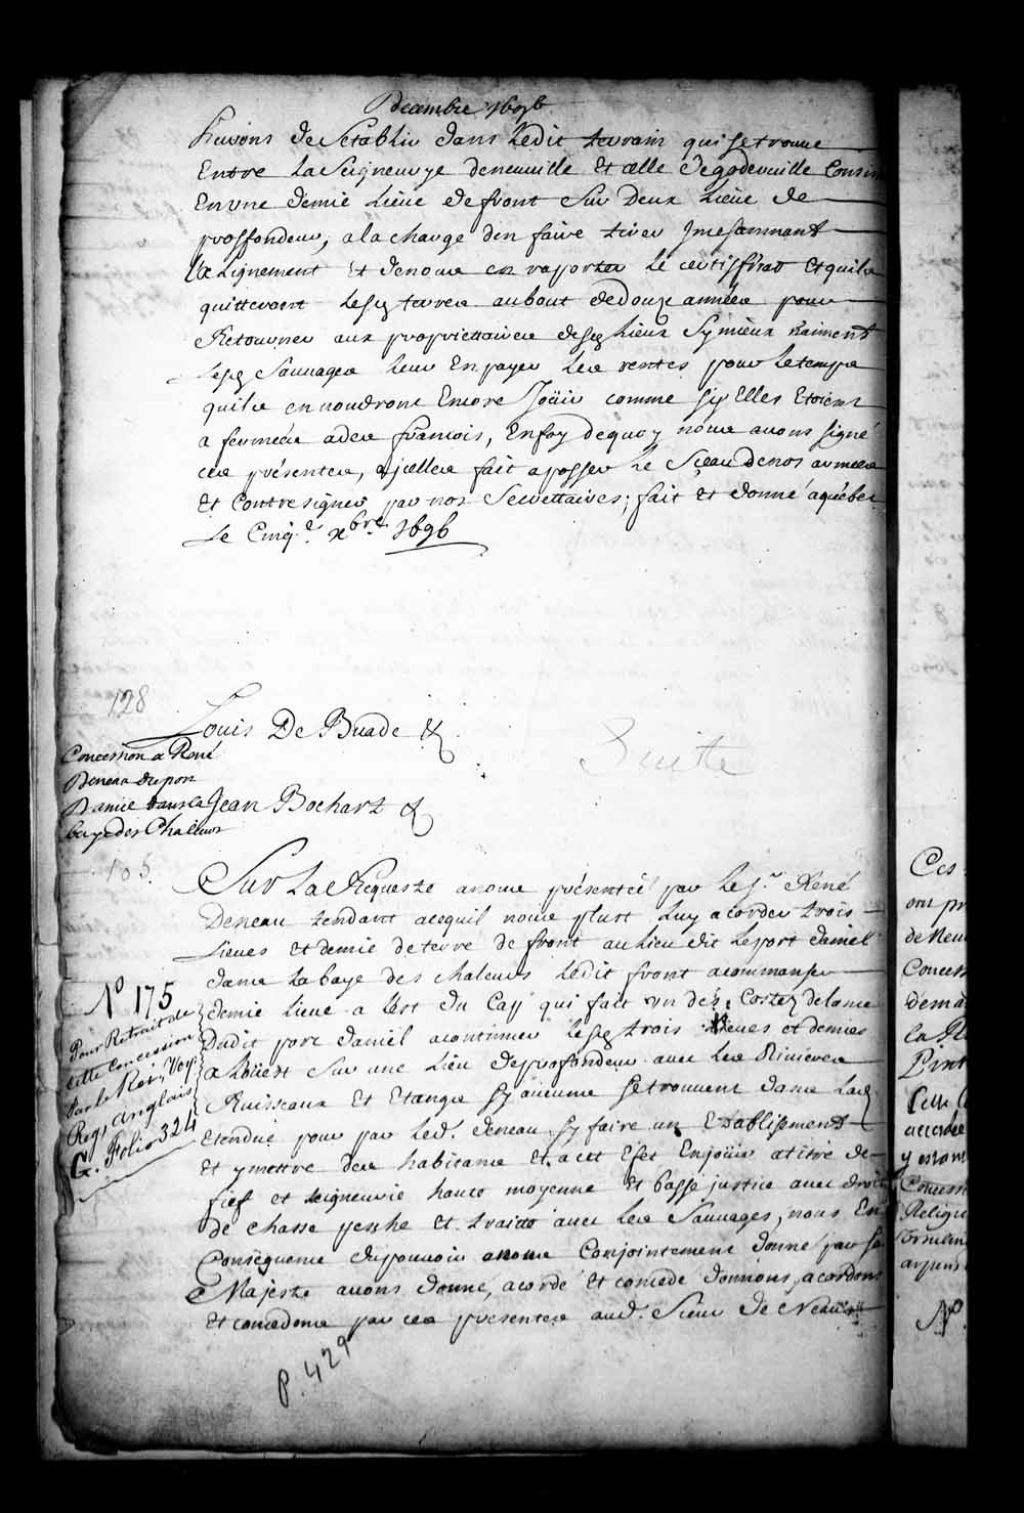 Decembre 1696
de Sétablir dans Ledit terrain qui se trouve
Entre La Seigneurye deneuville Et celle Degodeville Consis
En une demie Lieüe de front Sur Deux Lieüe De
proffondeur, a la charge d'en faire tirer Jncessamment
Lalignement Et denous en raporter Le certiffirat Et quils
quitteront lesd terres au bout dedouze années pour
Retourner aux propriettaires desd Lieux Sy mieux naiment
Lesd Sauvages Leur En payer Les rentes pour Letemps
quils en voudront Encore Joüir comme Sy Elles Etoient
a fermées a des francois, En foy dequoy nous avons signé
ces présentes, a jcelles fait apposer Le Sçeau denos armes
Et Contresigner par nos Secrettaires; fait Et donné a québec
Le Cinq.e xbre 1696
128
Louis De Buade &
Suitte
Concession a René
Deneau du port
Daniel dans la
baye des Chaleurs
Jean Bochart &
105.
Sur La Requeste a nous présentée par le Sr. René
Deneau tendant acequil nous plust Luy acorder trois
Lieues Et demie de terre de front au lieu dit Leport daniel
dans La baye des chaleurs Ledit front acommanser
demie lieue a Lest du Cap qui fait un des Costez de lance
Dudit port daniel a continuer lesd trois lieues et demies
a Loüest Sur une Lieu Deprofondeur avec Les Rivieres
Ruisseaux Et Etangs Sy aucuns Se trouvent dans Lad
Etendüe pour par Led. deneau Sy faire un Etablissement
Et y mettre des habitans Et a cet Efet En joüir a titre de
fief et seigneurie haute moyenne Et basse justice avec droit
de chasse pesche Et traitte avec Les Sauvages, nous En
Conséquence dupouvoir a nous Conjointement donné par Sa
Majesté avons donné, acordé Et concedé donnons, acordons
Et concedons par ces presentes aud. Sieur De Neau
No 175
Pour Retrait de
cette Concession
Par le Roi, Voy.
Regr Anglais
G. Folio 324
p. 429
Ces
ont pr
de Neu
Concess
demas
la
Cette
accordée
y estant
Concess
Religi
arpens
No